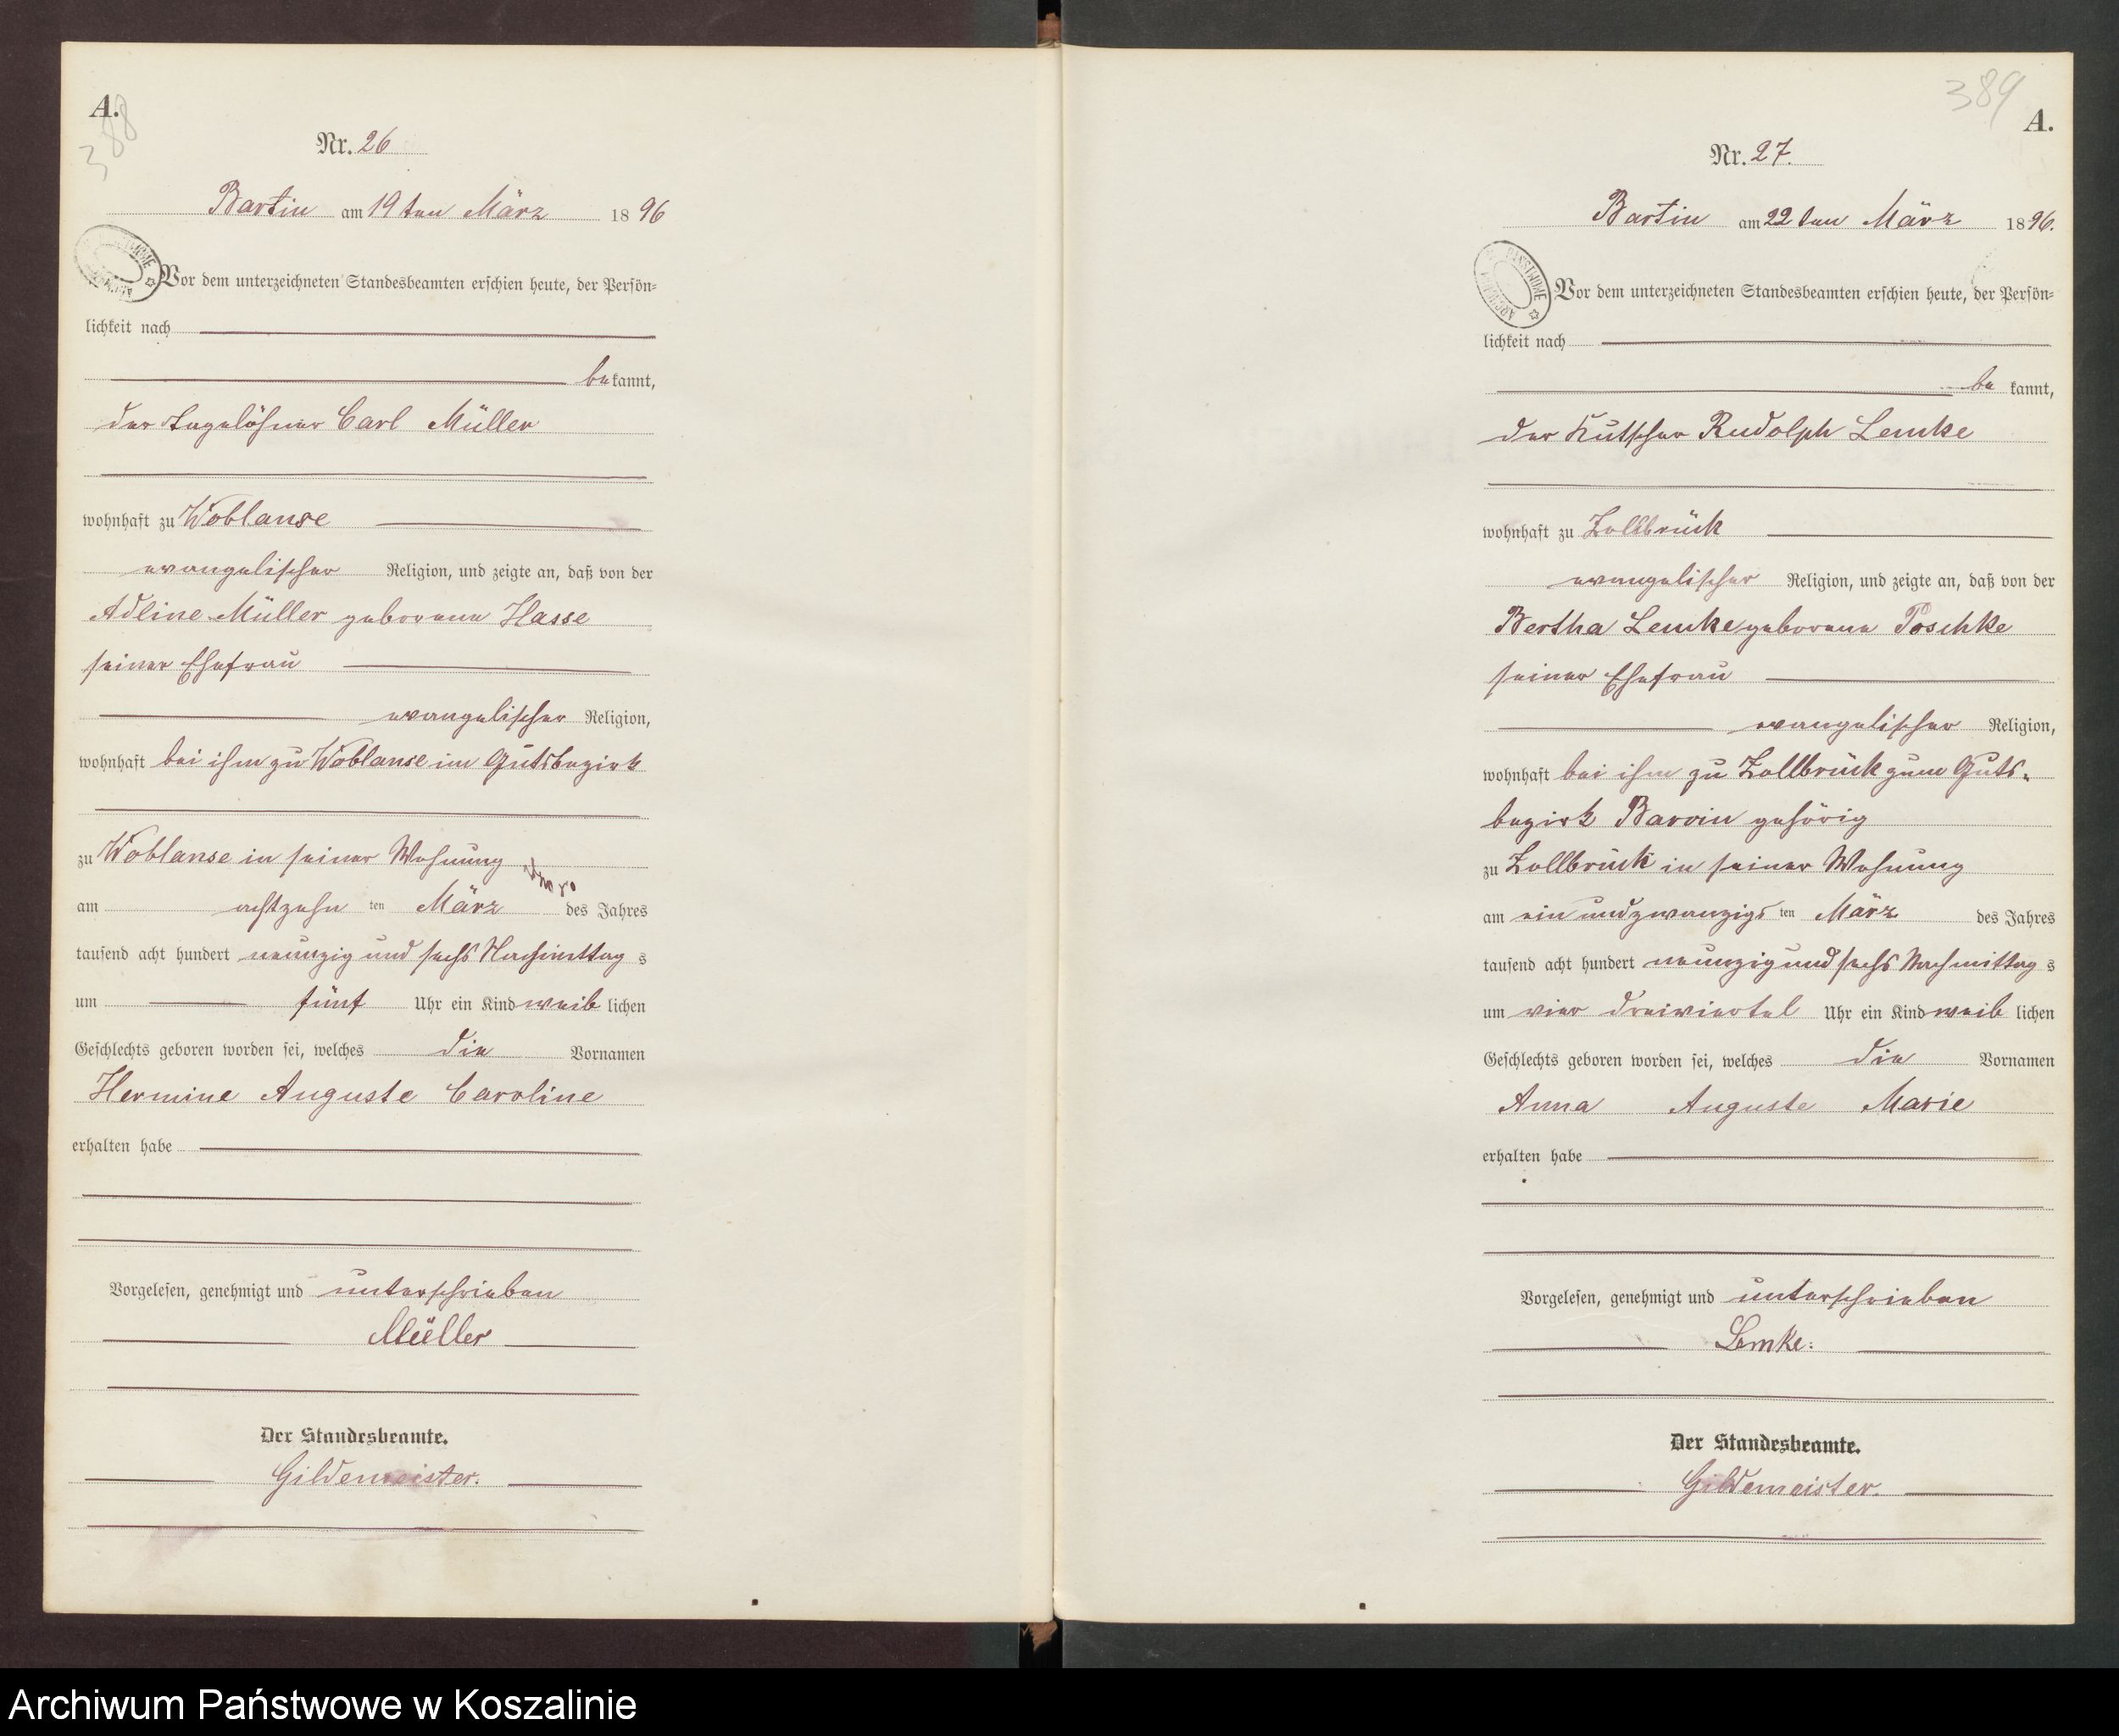 A.
388
Nr. 26
Bartin am 19 ten März 1896
Vor dem unterzeichneten Standesbeamten erschien heute, der Persön-
lichkeit nach
bekannt,
der Tagelöhner Carl Müller
wohnhaft zu Woblanse
evangelischer Religion, und zeigte an, daß von der
Adline Müller geborene Hasse
seiner Ehefrau
evangelischer Religion,
wohnhaft bei ihm zu Woblanse im Gutsbezirk
zu Woblanse in seiner Wohnung
am achtzehn ten März des Jahres
tausend acht hundert neunzig und sechs Nachmittag s
um fünf Uhr ein Kind weib lichen
Geschlechts geboren worden sei, welches die Vornamen
Hermine Auguste Caroline
erhalten habe
Vorgelesen, genehmigt und unterschrieben
Müller
Der Standesbeamte.
Gildemeister.
389
A.
Nr. 27.
Bartin am 22 ten März 1896.
Vor dem unterzeichneten Standesbeamten erschien heute, der Persön-
lichkeit nach
be kannt,
der Kutscher Rudolph Lemke
wohnhaft zu Zollbrück
evangelischer Religion, und zeigte an, daß von der
Bertha Lemke geborene Poschke
seiner Ehefrau
evangelischer Religion,
wohnhaft bei ihm zu Zollbrück zum Guts-
bezirk Barvin gehörig
zu Zollbrück in seiner Wohnung
am ein und zwanzigs ten März des Jahres
tausend acht hundert neunzig und sechs Nachmittag s
um vier dreiviertel Uhr ein Kind weib lichen
Geschlechts geboren worden sei, welches die Vornamen
Anna Auguste Marie
erhalten habe
Vorgelesen, genehmigt und unterschrieben
Lemke.
Der Standesbeamte.
Gildemeister.
Archiwum Państwowe w Koszalinie